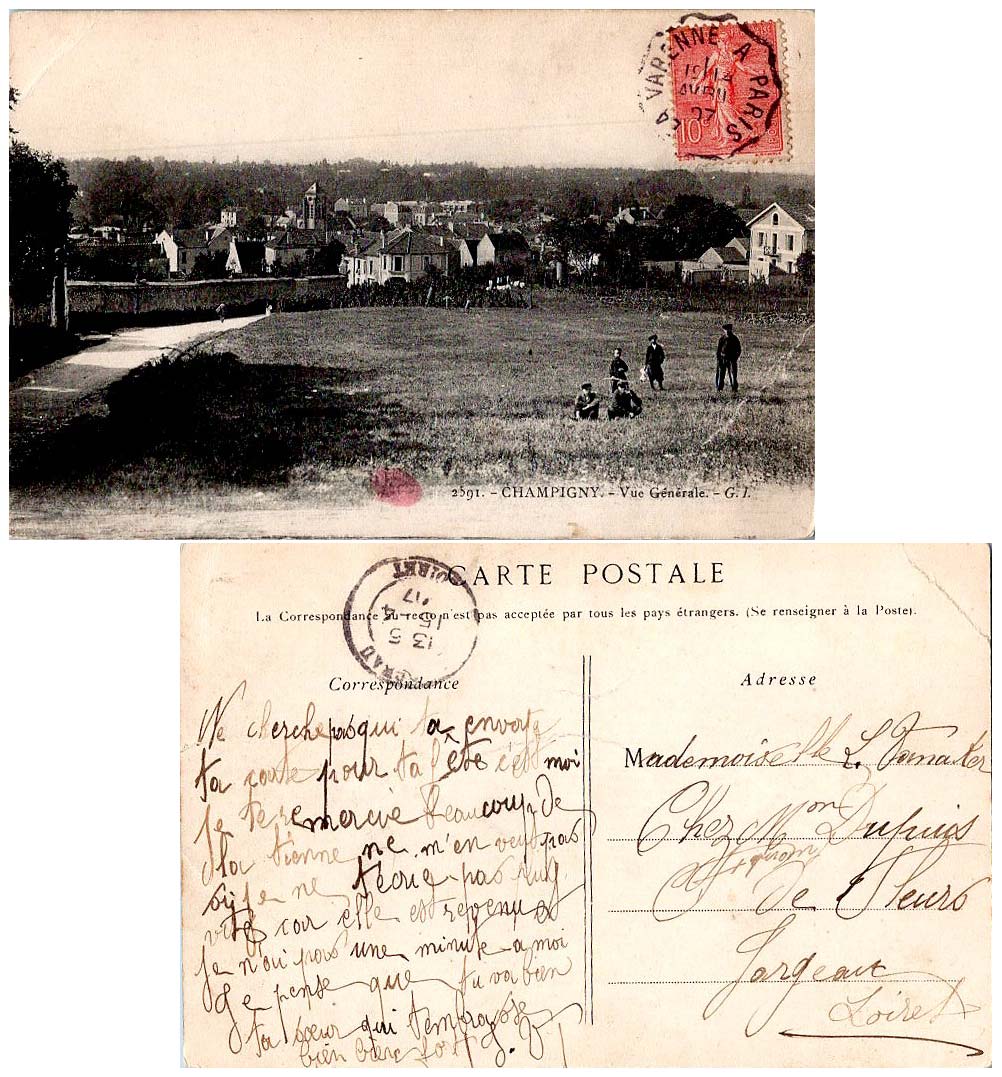 LA VARENNE A PARIS
AVRIL
07
10c
2591. - CHAMPIGNY. - Vue Générale. - G. I.
CARTE POSTALE
La Correspondance au recto n'est pas acceptée par tous les pays étrangers. (Se renseigner à la Poste).
LOIRET
13 5
15 - 4
07
Correspondance
Adresse
Ne cherche pas qui ta envorte
ta carte pour ta fête c'est moi
je te remercie beaucoup de
la tienne ne m'en veut pas
si je ne técrie pas plus
vite car elle est revenue
je n'ai pas une minute a moi
Je pense que tu va bien
ta sœur qui tembrasse
bien bien fort
Mademoiselle L.
Chez Mon Dupuis
de Fleurs
Jargeau
Loiret